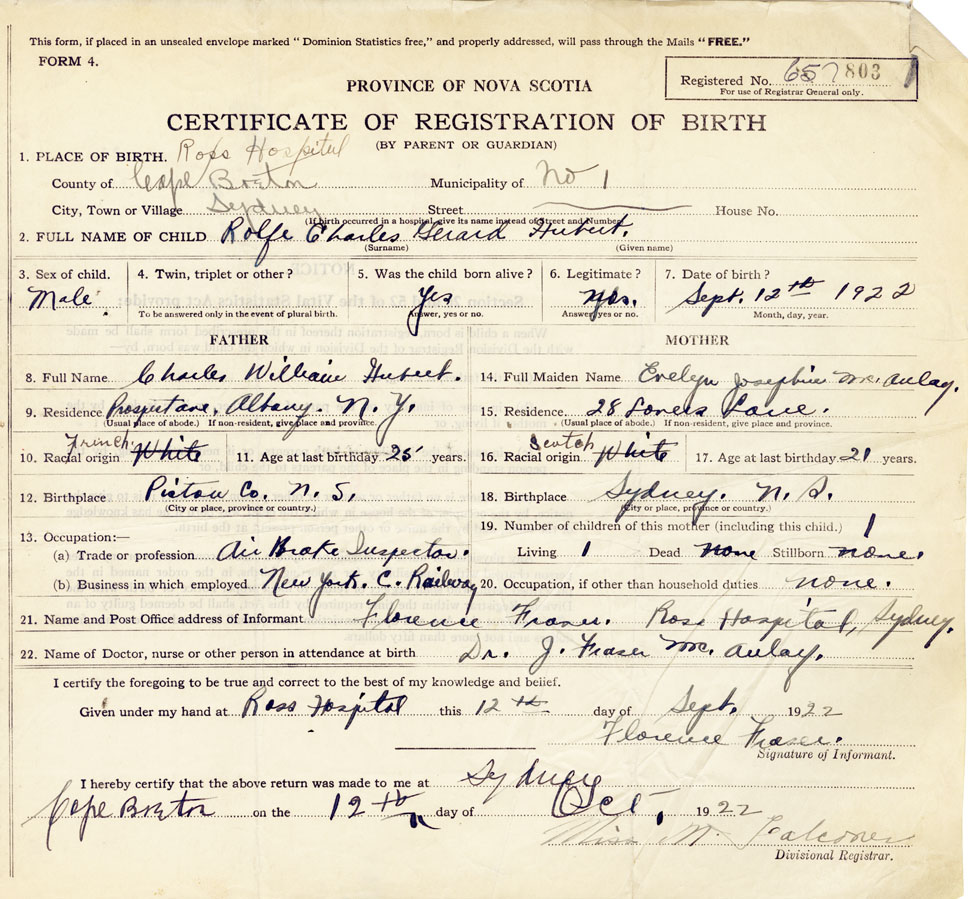 This form, if placed in an unsealed envelope marked "Dominion Statistics free," and properly addressed, will pass through the Mails "FREE."
FORM 4.
PROVINCE OF NOVA SCOTIA
Registered No. 657 803
For use of Registrar General only.
CERTIFICATE OF REGISTRATION OF BIRTH
(BY PARENT OR GUARDIAN)
1. PLACE OF BIRTH. Ross Hospital
County of Cape Breton Municipality of No 1
City, Town or Village Sydney Street House No.
(If birth occurred in a hospital, give its name instead of Street and Number)
2. FULL NAME OF CHILD Rolfe Charles Gerard Hubert.
(Surname) (Given name)
3. Sex of child. 4. Twin, triplet or other? 5. Was the child born alive? 6. Legitimate? 7. Date of birth?
Male Yes yes. Sept. 12th 1922
To be answered only in the event of plural birth. Answer, yes or no. Answer, yes or no. Month, day, year.
FATHER MOTHER
8. Full Name Charles William Hubert. 14. Full Maiden Name Evelyn Josephine Mc. Aulay.
9. Residence Albany. N. Y. 15. Residence. 28 Lovers Lane.
(Usual place of abode.) If non-resident, give place and province. (Usual place of abode.) If non-resident, give place and province.
French Scotch
10. Racial origin White 11. Age at last birthday 25 years. 16. Racial origin White 17. Age at last birthday 21 years.
12. Birthplace Pictou Co. N. S. 18. Birthplace Sydney. N. S.
(City or place, province or country.) (City or place, province or country.)
19. Number of children of this mother (including this child.) 1
13. Occupation:—
(a) Trade or profession Air Brake Inspector. Living 1 Dead none Stillborn none.
(b) Business in which employed New York. C. Railway 20. Occupation, if other than household duties none.
21. Name and Post Office address of Informant Florence Fraser. Ross Hospital, Sydney.
22. Name of Doctor, nurse or other person in attendance at birth Dr. J. Fraser Mc. Aulay.
I certify the foregoing to be true and correct to the best of my knowledge and belief.
Given under my hand at Ross Hospital this 12th day of Sept. 1922
Florence Fraser.
Signature of Informant.
I hereby certify that the above return was made to me at Sydney
Cape Breton on the 12th day of Oct. 1922
Miss M. Falconer
Divisional Registrar.